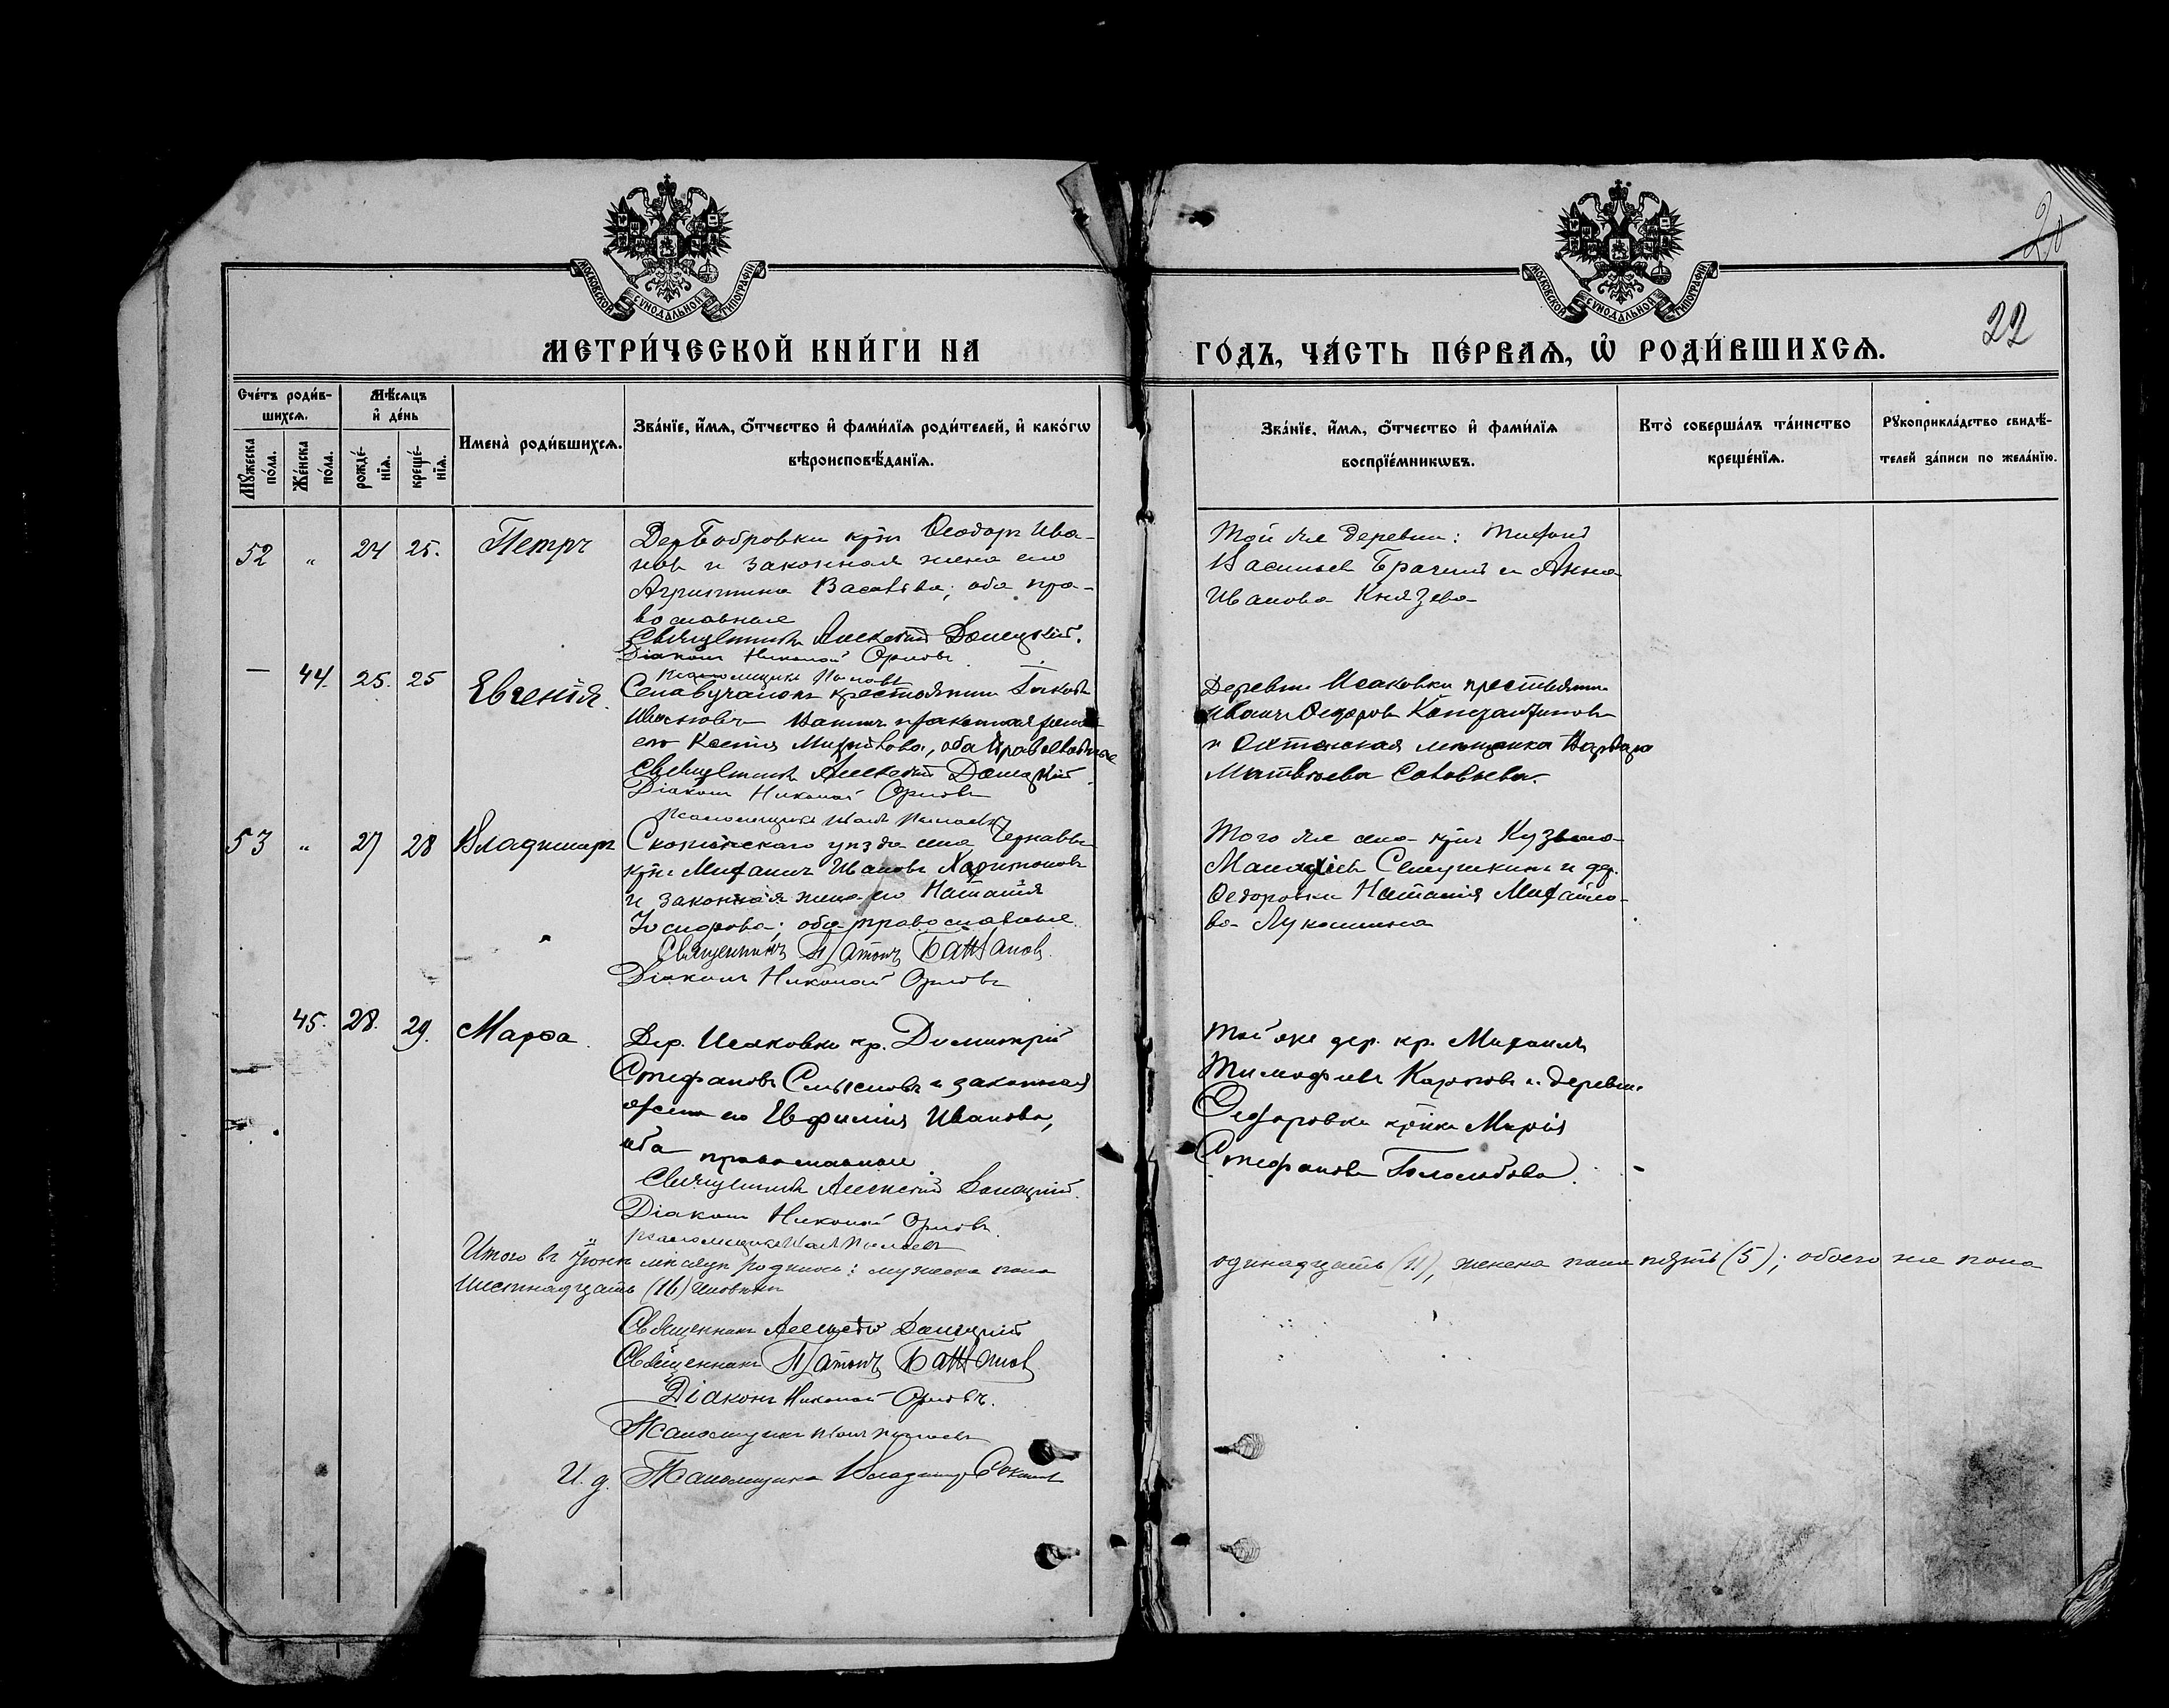 МОСКОВСКОЙ СУНОДАЛЬНОЙ ТИПОГРАФІИ
МОСКОВСКОЙ СУНОДАЛЬНОЙ ТИПОГРАФІИ
20
22
МЕТРИ́ЧЕСКОЙ КНИ́ГИ НА
ГО́ДЪ, ЧА́СТЬ ПЕ́РВАѦ, Ѡ҆ РОДИ́ВШИХСѦ.
Сче́тъ роди́в-
шихсѧ.
Мꙋ́жеска
по́ла.
Же́нска
по́ла.
Мѣ́сѧцъ
и҆ де́нь
рожде́-
нїѧ.
креще́-
нїѧ.
Имена̀ роди́вшихсѧ.
Зва́нїе, и҆́мѧ, ѻ҆́тчество и҆ фами́лїѧ роди́телей, и҆ како́гѡ
вѣроисповѣ́данїѧ.
Зва́нїе, и҆́мѧ, ѻ҆́тчество и҆ фами́лїѧ
воспрїе́мникѡвъ.
Кто̀ соверша́лъ та́инство
креще́нїѧ.
Рꙋкоприкла́дство свидѣ́-
телей за́писи по жела́нїю.
52 „ 24 25. Петръ
Дер. Бобровки кр҃нъ Ѳеодоръ Ива-
новъ и законная жена его
Агриппина Васильева; оба пра-
вославные
Священникъ Алексѣй Донецкій.
Діаконъ Николай Орловъ
Той же деревни: Тихонъ
Васильевъ и Анна
Иванова Князева
— 44. 25. 25 Евгенія.
крестьянинъ Яковъ
Ивановъ и законная жена
его Ксенія, оба православные
Священникъ Алексѣй Донецкій.
Діаконъ Николай Орловъ
Деревни Исаковки крестьянинъ
Иванъ Ѳедоровъ Константиновъ
и мѣщанка Варвара
Матвѣева Соловьева.
53 „ 27 28 Владимиръ
Скопинскаго уѣзда села Чернавы
кр҃нъ Михаилъ Ивановъ Харитоновъ
и законная жена его Наталія
оба православные
Священникъ Платонъ Бажановъ.
Діаконъ Николай Орловъ
Того же села кр҃нъ Кузьма
Семушкинъ и др.
Ѳедоровки Наталія Михайло-
ва Лукошкина
45. 28. 29. Марѳа.
Дер. Исаковки кр. Димитрій
Стефановъ и законная
жена его Евфимія Иванова,
оба православные.
Священникъ Алексѣй Донецкій.
Діаконъ Николай Орловъ.
Той же дер. кр. Михаилъ
Тимофеевъ и деревни
Ѳедоровки кр҃нка Марія
Стефанова
Итого въ Іюнѣ мѣсяцѣ родилось: мужеска пола
одинадцать (11), женска пола пять (5); обоего же пола
шестнадцать (16) человѣкъ
Священникъ Алексѣй Донецкій
Священникъ Платонъ Бажановъ
Діаконъ Николай Орловъ.
Псаломщикъ
И. д. Псаломщика Владимиръ